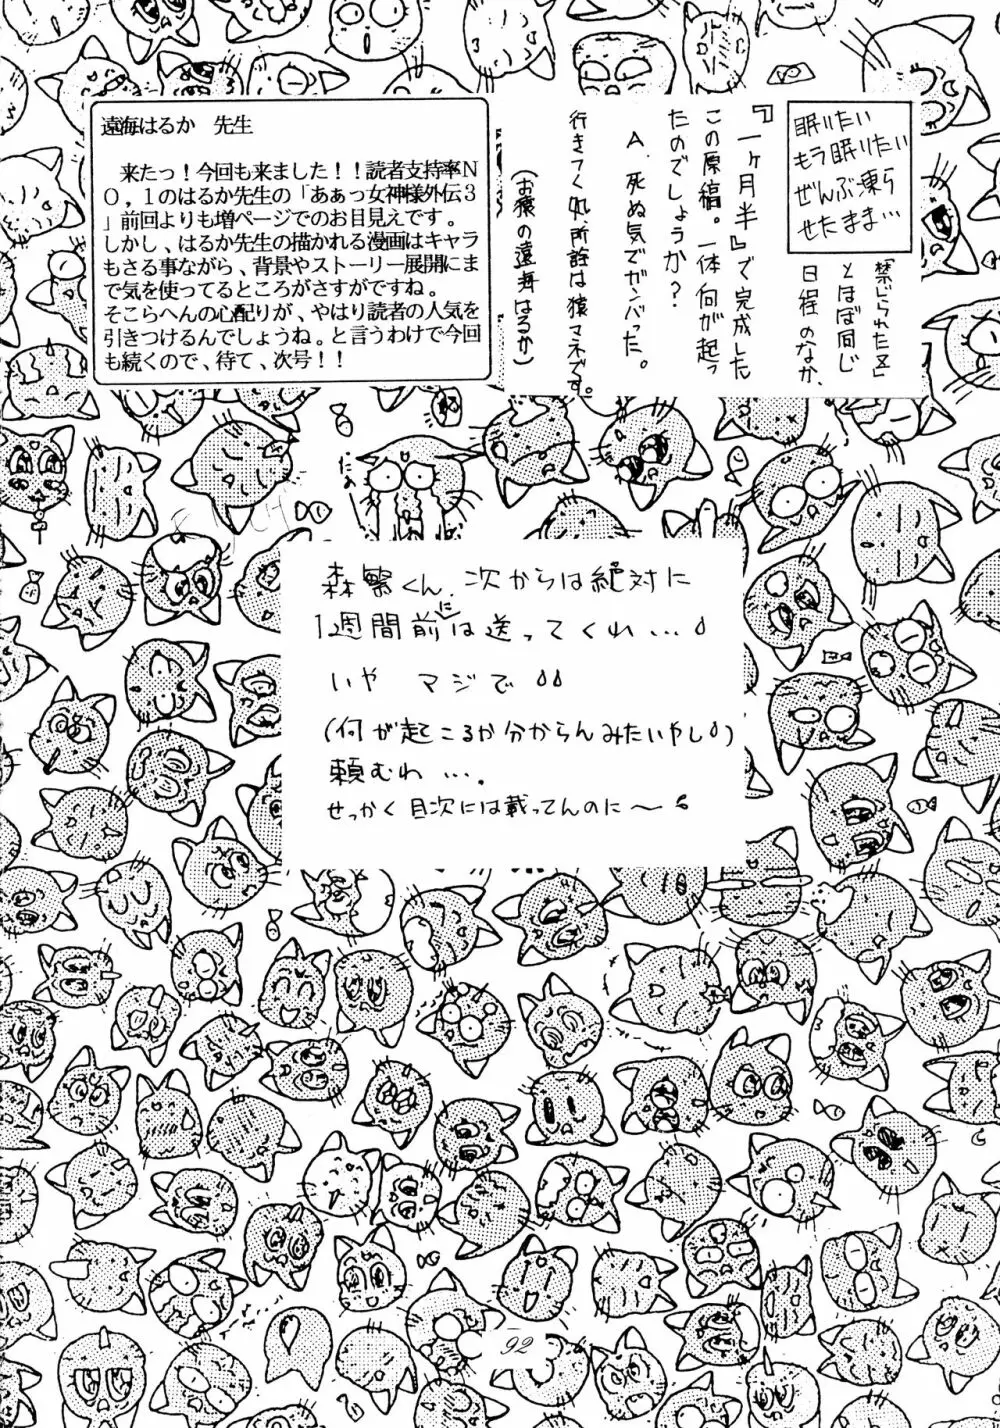 眠りたい
もう眠りたい
ぜんぶ凍ら
せたまま…
「禁じられた区」
とほぼ同じ
日程のなか、
『一ヶ月半』で完成した
この原稿。一体何が起っ
たのでしょうか?
A.死ぬ気でガンバった。
行きつく所、所詮は猿マネです。
(お猿の遠海はるか)
遠海はるか 先生
来たっ!今回も来ました!!読者支持率N
O,1のはるか先生の「あぁっ女神様外伝3
」前回よりも増ページでのお目見えです。
しかし、はるか先生の描かれる漫画はキャラ
もさる事ながら、背景やストーリー展開にま
で気を使ってるところがさすがですね。
そこらへんの心配りが、やはり読者の人気を
引きつけるんでしょうね。と言うわけで今回
も続くので、待て、次号!!
森繁くん、次からは絶対に
1週間前には送ってくれ…
いや マジで
(何が起こるか分からんみたいやし)
頼むわ…。
せっかく目次には載ってんのに〜
92